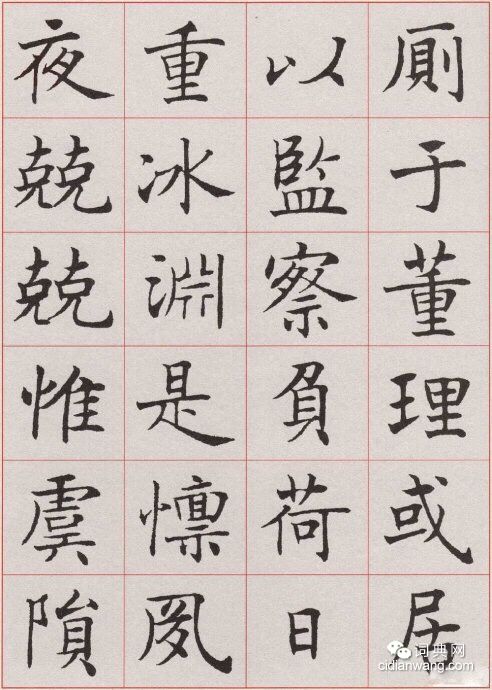 厠于董理或居
以監察負荷日
重冰淵是懍夙
夜兢兢惟虞隕
词典网
cidianwang.com